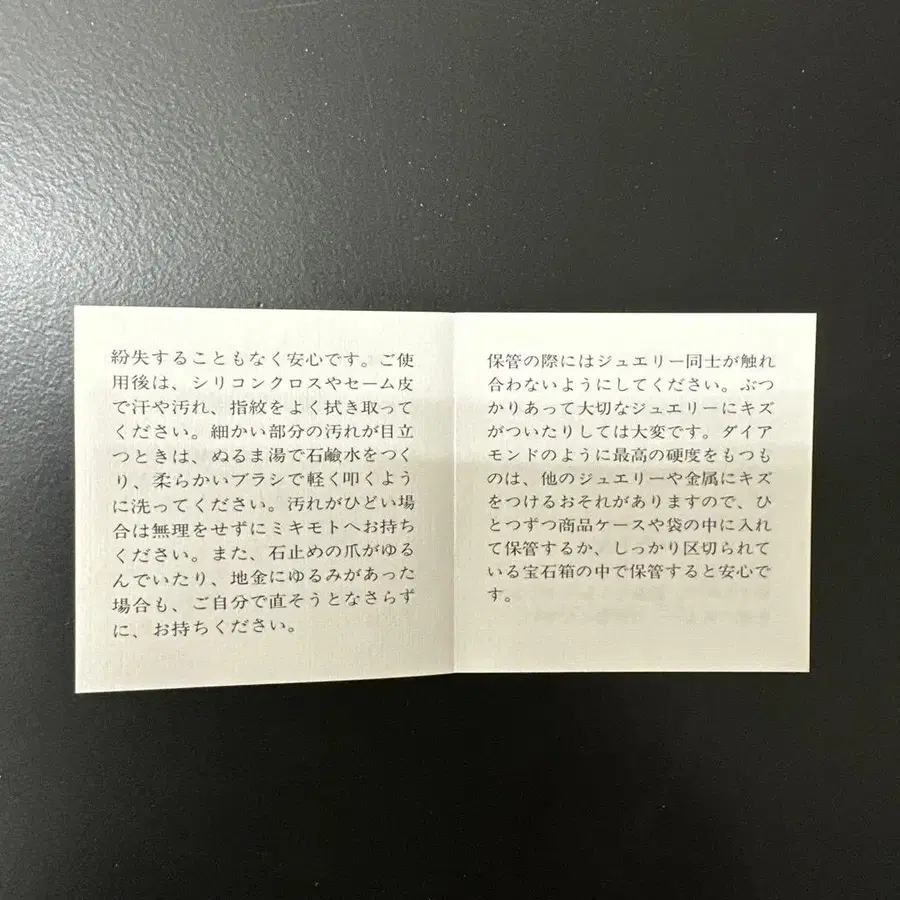 紛失することもなく安心です。ご使
用後は、シリコンクロスやセーム皮
で汗や汚れ、指紋をよく拭き取って
ください。細かい部分の汚れが目立
つときは、ぬるま湯で石鹼水をつく
り、柔らかいブラシで軽く叩くよう
に洗ってください。汚れがひどい場
合は無理をせずにミキモトへお持ち
ください。また、石止めの爪がゆる
んでいたり、地金にゆるみがあった
場合も、ご自分で直そうとなさらず
に、お持ちください。
保管の際にはジュエリー同士が触れ
合わないようにしてください。ぶつ
かりあって大切なジュエリーにキズ
がついたりしては大変です。ダイア
モンドのように最高の硬度をもつも
のは、他のジュエリーや金属にキズ
をつけるおそれがありますので、ひ
とつずつ商品ケースや袋の中に入れ
て保管するか、しっかり区切られて
いる宝石箱の中で保管すると安心で
す。